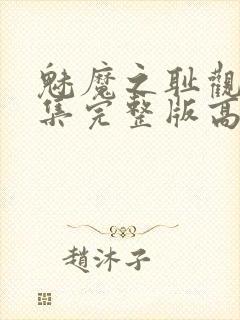 魅魔之耻觀
集完整版高
趙沐子